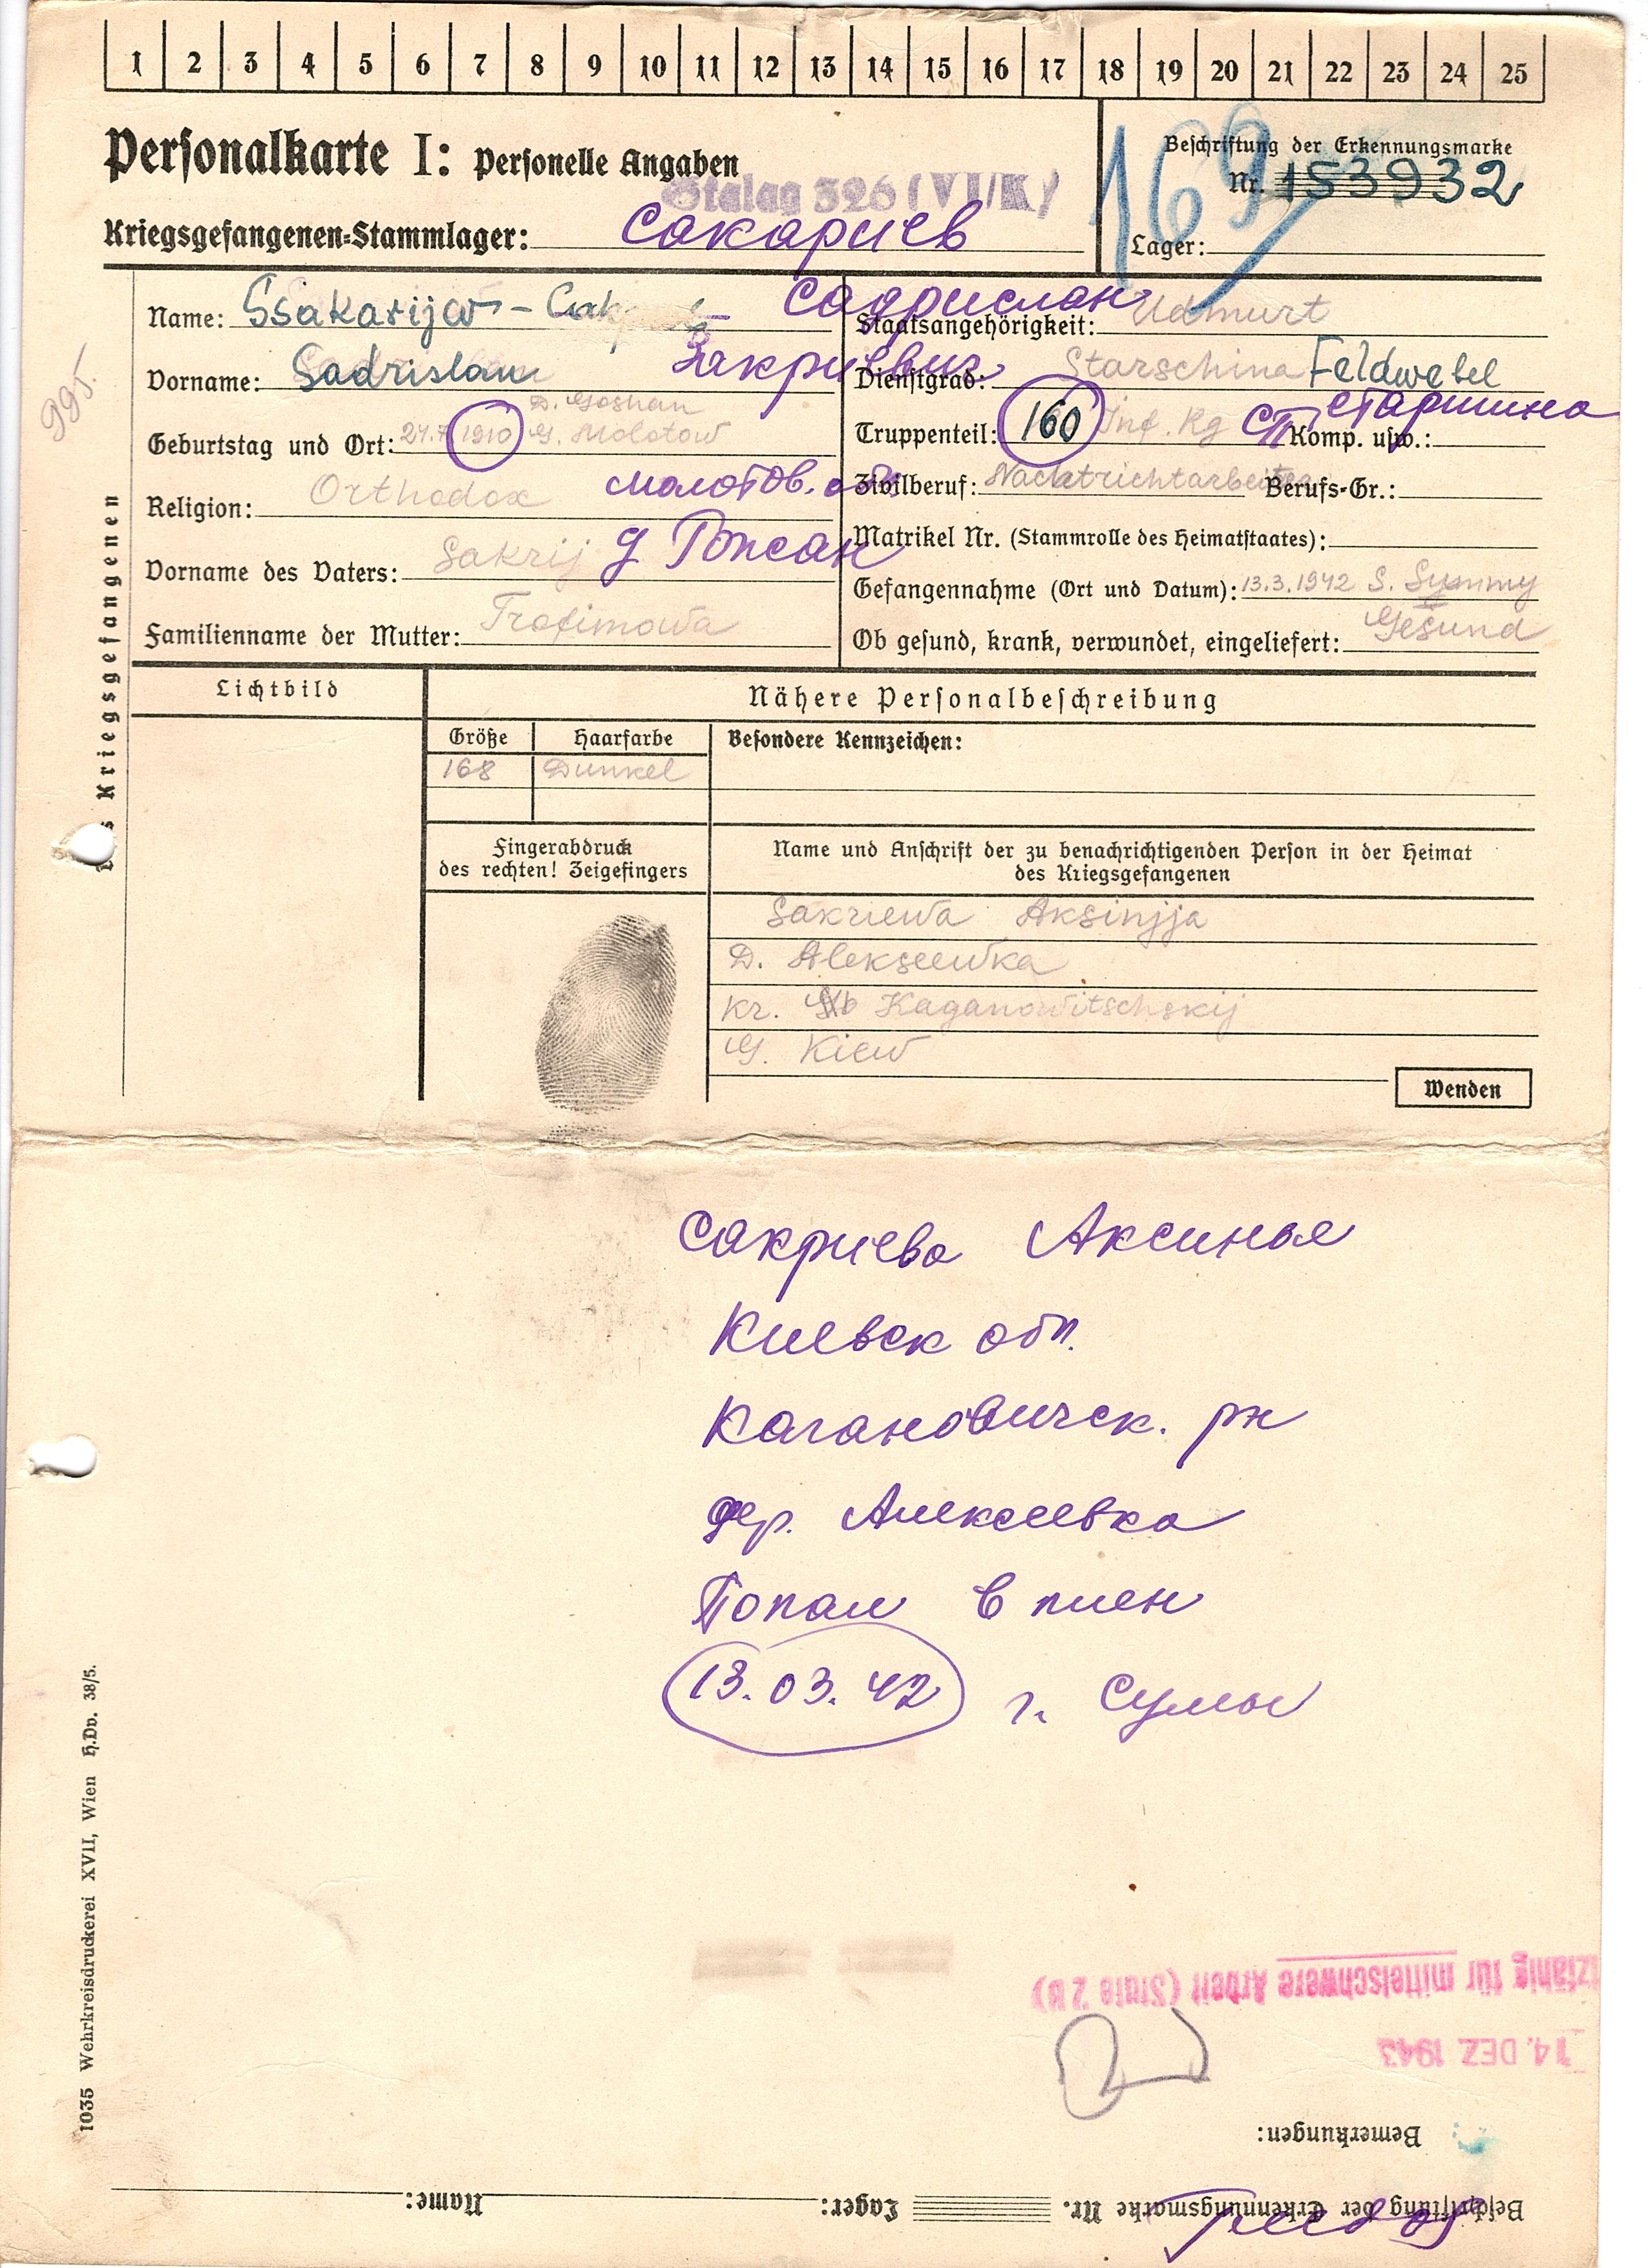 1 2 3 4 5 6 7 8 9 10 11 12 13 14 15 16 17 18 19 20 21 22 23 24 25
Personalkarte I: Personelle Angaben
Stalag 326 (VI/K)
Kriegsgefangenen-Stammlager: Сакариев
Beschriftung der Erkennungsmarke
Nr. 153932
Lager:
169
Name: Ssakarijew -
Садрислан
Vorname: Sadrislan
Закриевич
D. Goshan
Geburtstag und Ort: 24.7.1910 G. Molotow
Religion: Orthodox
Молотов. обл
Vorname des Vaters: Sakrij
д Гопсан
Familienname der Mutter: Trofimowa
Staatsangehörigkeit: Udmurt
Dienstgrad: Starschina Feldwebel
старшина
Truppenteil: 160 Inf. Rg СП Komp. usw.:
Zivilberuf: Nachtrichtarbeiter Berufs-Gr.:
Matrikel Nr. (Stammrolle des Heimatstaates):
Gefangennahme (Ort und Datum): 13.3.1942 S. Summy
Ob gesund, krank, verwundet, eingeliefert: Gesund
995.
s Kriegsgefangenen
Lichtbild
Nähere Personalbeschreibung
Größe Haarfarbe
168 Dunkel
Besondere Kennzeichen:
Fingerabdruck
des rechten! Zeigefingers
Name und Anschrift der zu benachrichtigenden Person in der Heimat
des Kriegsgefangenen
Sakriewa Aksinjja
D. Alekseewka
Kr. Kaganowitschskij
G. Kiew
Wenden
Сакриева Аксинья
Киевск обл.
Кагановичск. рн
дер. Алексеевка
Попал в плен
13.03.42 г. Сумы
1035 Wehrkreisdruckerei XVII, Wien H.Dv. 38/5.
tzfähig für mittelschwere Arbeit (Stufe 2 B)
14. DEZ. 1943
Bemerkungen:
Beschriftung der Erkennungsmarke Nr. Lager: Name: